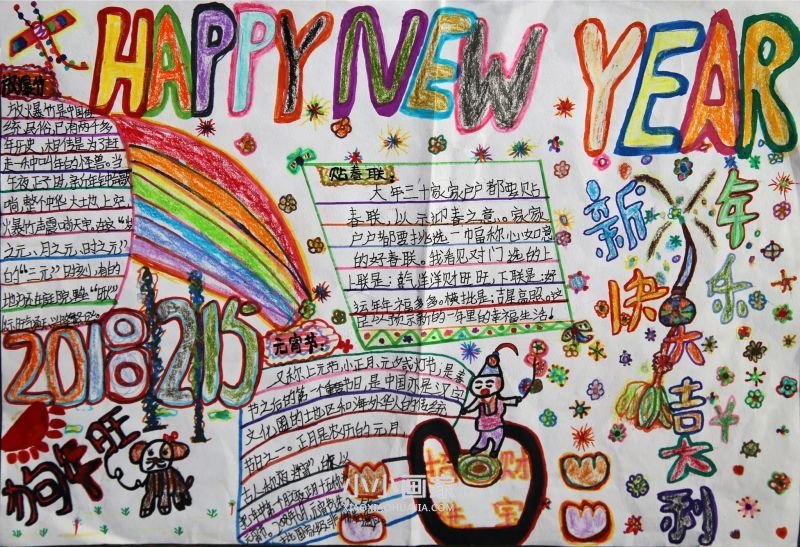 HAPPY NEW YEAR
放爆竹
放爆竹是中国传
统民俗,已有两千多
年历史,相传是为了赶
走一个叫年的怪兽。当
午夜
唱,整个中华大地上空,
火暴竹声震响天宇,
之元、月之元、时之元”
的“三元”时刻,有的
贴春联:
大年三十家家户户都要贴
春联,以示迎春之意。家家
户户都要挑选一幅称心如意
的好春联。我看见对门选的上
上联是:乾 洋洋财旺旺,下联是:好
运年年福多多。横批是:吉星高照。这
以预示新的一年里的幸福生活!
新年
快乐
大吉大利
2018 2 15
元宵节:
又称上元节,小正月、元夕或灯节,是春
节之后的第一个重要节日,是中国亦是汉字
文化圈的土地区和海外华人的传统
节日之一。正月是农历的元月,
古人称夜为“宵”
狗年旺
招财
小小画家
XIAOXIAOHUAJIA.COM